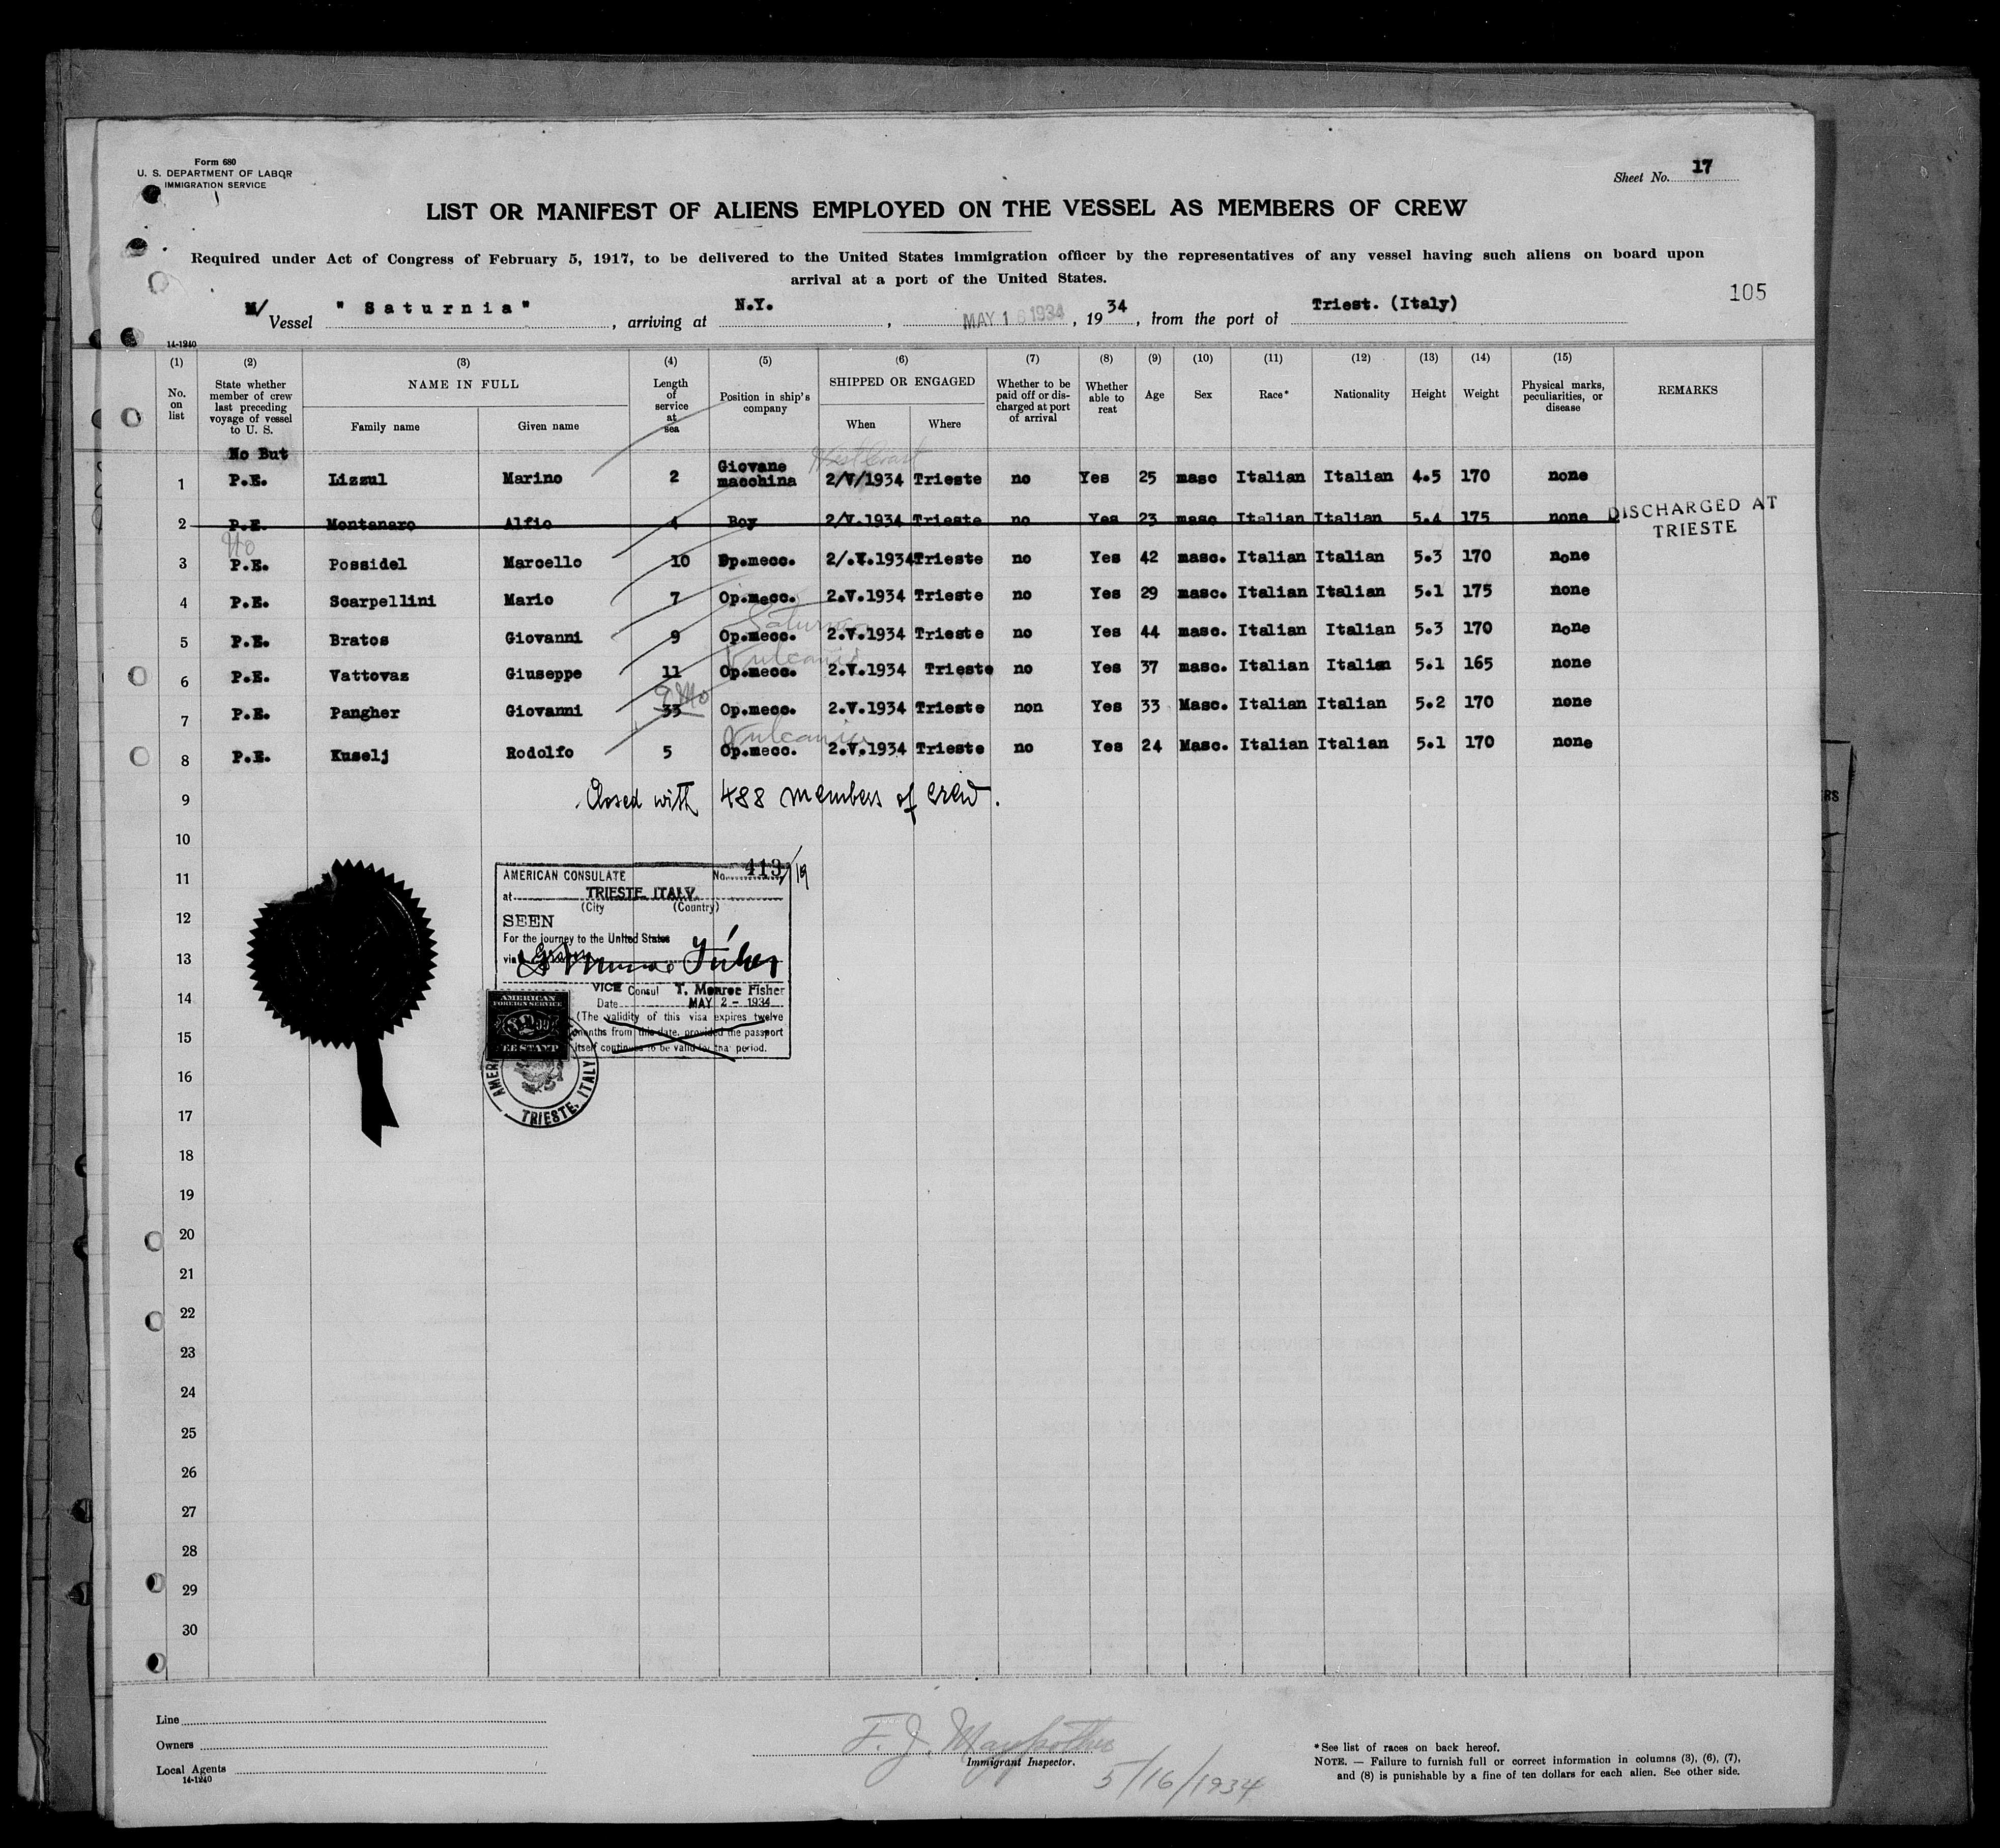 Form 680
U. S. DEPARTMENT OF LABOR
IMMIGRATION SERVICE
Sheet No. 17
LIST OR MANIFEST OF ALIENS EMPLOYED ON THE VESSEL AS MEMBERS OF CREW
Required under Act of Congress of February 5, 1917, to be delivered to the United States immigration officer by the representatives of any vessel having such aliens on board upon
arrival at a port of the United States.
105
M/ Vessel " Saturnia " , arriving at N.Y. , MAY 16 1934 , 19 34 , from the port of Triest. (Italy)
14-1240
(1) (2) (3) (4) (5) (6) (7) (8) (9) (10) (11) (12) (13) (14) (15)
No. on list State whether member of crew last preceding voyage of vessel to U. S. NAME IN FULL Length of service at sea Position in ship's company SHIPPED OR ENGAGED Whether to be paid off or discharged at port of arrival Whether able to reat Age Sex Race* Nationality Height Weight Physical marks, peculiarities, or disease REMARKS
Family name Given name When Where
No But
1 P.E. Lizzul Marino 2 Giovane macchina 2/V/1934 Trieste no Yes 25 masc Italian Italian 4.5 170 none
2 P.E. Montanaro Alfio 4 Boy 2/V.1934 Trieste no Yes 23 masc Italian Italian 5.4 175 none DISCHARGED AT TRIESTE
No
3 P.E. Possidel Marcello 10 Op.mecc. 2/.V.1934 Trieste no Yes 42 masc. Italian Italian 5.3 170 none
4 P.E. Scarpellini Mario 7 Op.mecc. 2.V.1934 Trieste no Yes 29 masc. Italian Italian 5.1 175 none
Saturnia
5 P.E. Bratos Giovanni 9 Op.mecc. 2.V.1934 Trieste no Yes 44 masc. Italian Italian 5.3 170 none
Vulcania
6 P.E. Vattovaz Giuseppe 11 Op.mecc. 2.V.1934 Trieste no Yes 37 masc. Italian Italian 5.1 165 none
9 Mo
7 P.E. Pangher Giovanni 33 Op.mecc. 2.V.1934 Trieste non Yes 33 Masc. Italian Italian 5.2 170 none
Vulcania
8 P.E. Kuselj Rodolfo 5 Op.mecc. 2.V.1934 Trieste no Yes 24 Masc. Italian Italian 5.1 170 none
9 Closed with 488 members of crew.
10
11
12
13
14
15
16
17
18
19
20
21
22
23
24
25
26
27
28
29
30
AMERICAN CONSULATE No. 413/19
at TRIESTE ITALY.
(City (Country)
SEEN
For the journey to the United States
via
T. Monroe Fisher
VICE Consul T. Monroe Fisher
Date MAY 2 - 1934
(The validity of this visa expires twelve
months from this date, provided the passport
itself continues to be valid for that period.
AMERICAN
FOREIGN SERVICE
FEE STAMP
TRIESTE, ITALY
Line
Owners
Local Agents
14-1240
Immigrant Inspector.
5/16/1934
*See list of races on back hereof.
NOTE. — Failure to furnish full or correct information in columns (3), (6), (7),
and (8) is punishable by a fine of ten dollars for each alien. See other side.